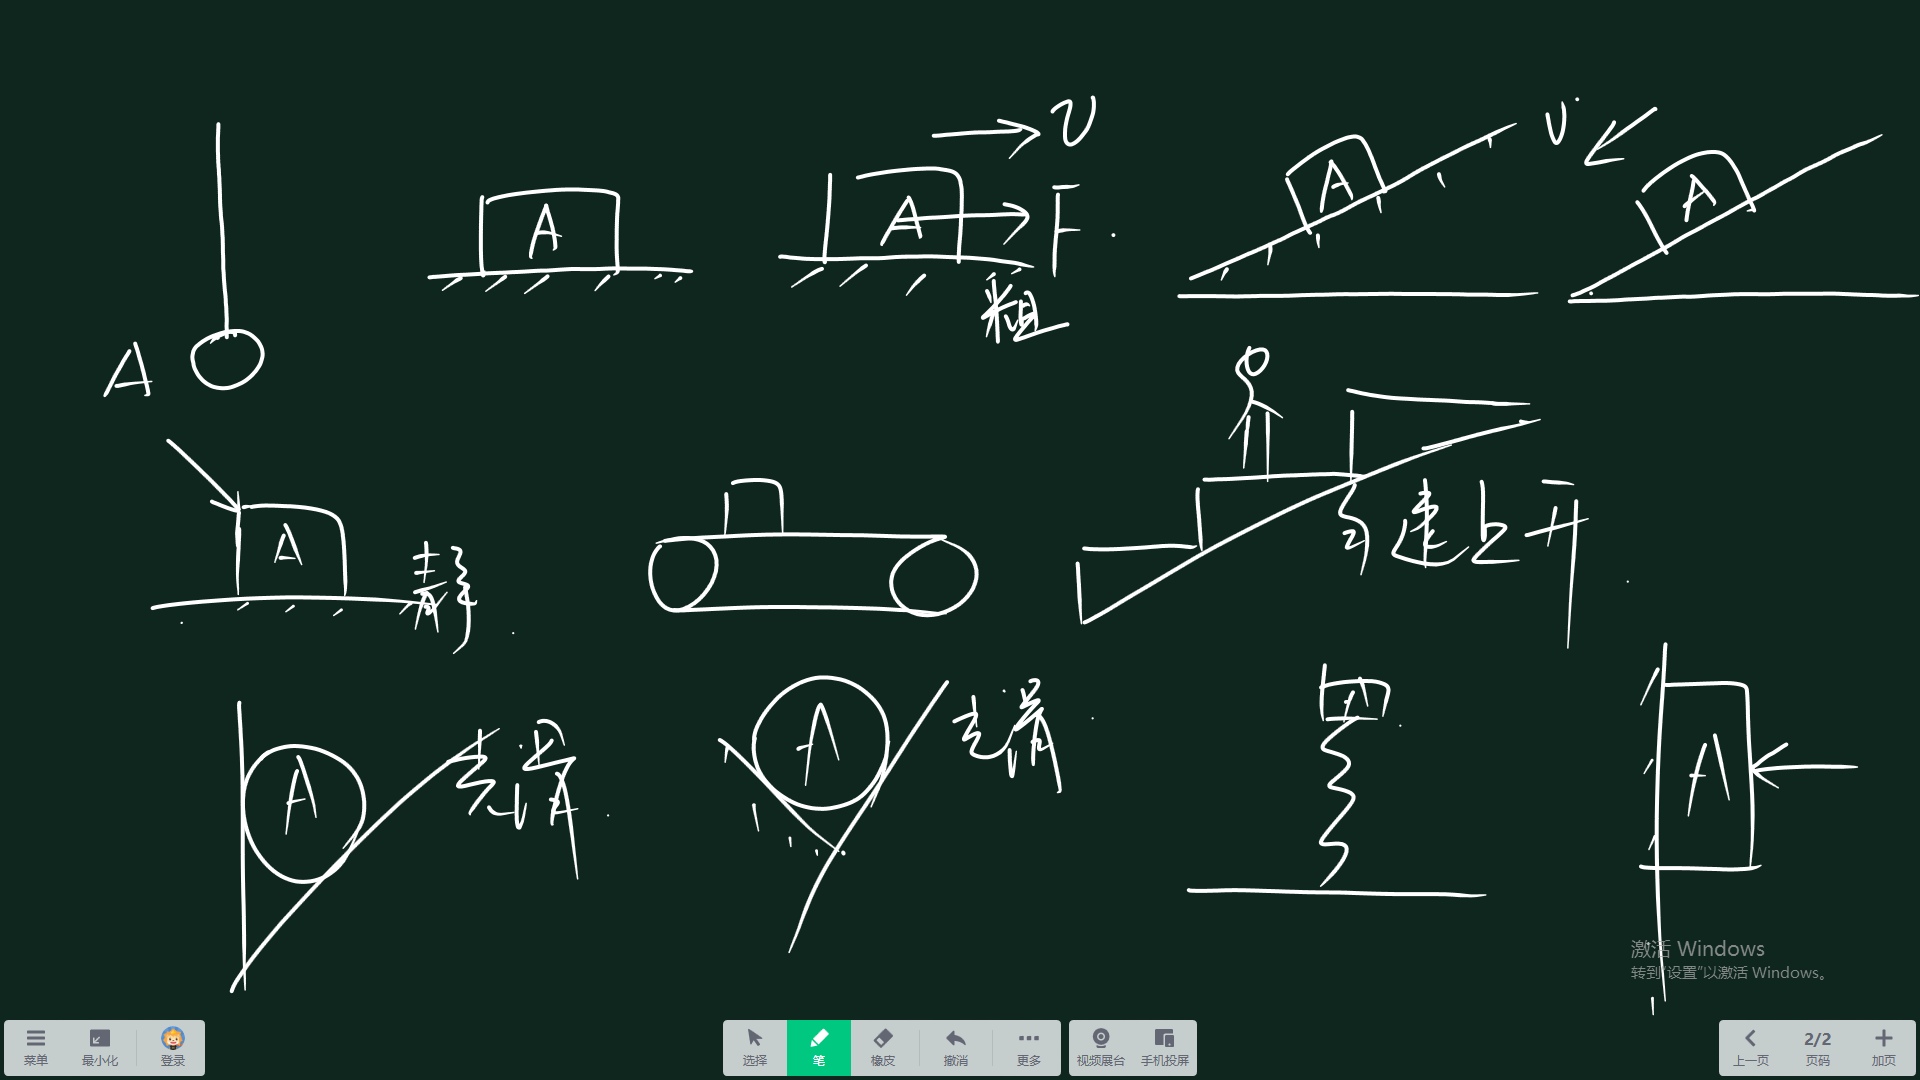 υ
A
A
F
粗
A
υ
A
A
A
静
匀速上升
A
光滑
A
光滑
A
A
激活 Windows
转到“设置”以激活 Windows。
菜单
最小化
登录
选择
笔
橡皮
撤消
更多
视频展台
手机投屏
上一页
2/2
页码
加页